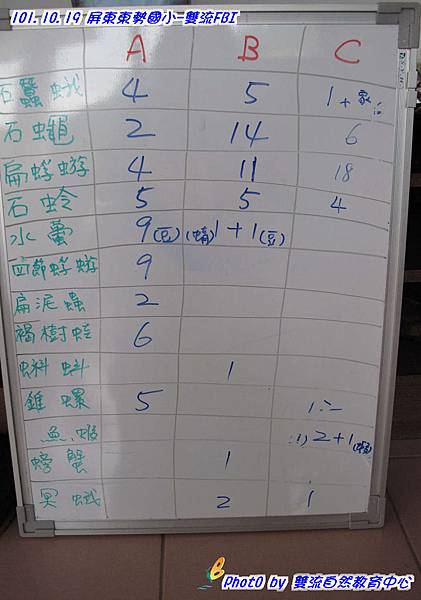 101.10.19 屏東東勢國小-雙流FBI
A B C
石蠶蛾 4 5 1+
石蠅 2 14 6
扁蜉蝣 4 11 18
石蛉 5 5 4
水蠆 9(豆) (蜻)1+1(豆)
四節蜉蝣 9
扁泥蟲 2
褐樹蛙 6
蝌蚪 1
錐螺 5
魚、蝦 2+1(蝦)
螃蟹 1
黑蛾 2 1
Photo by 雙流自然教育中心